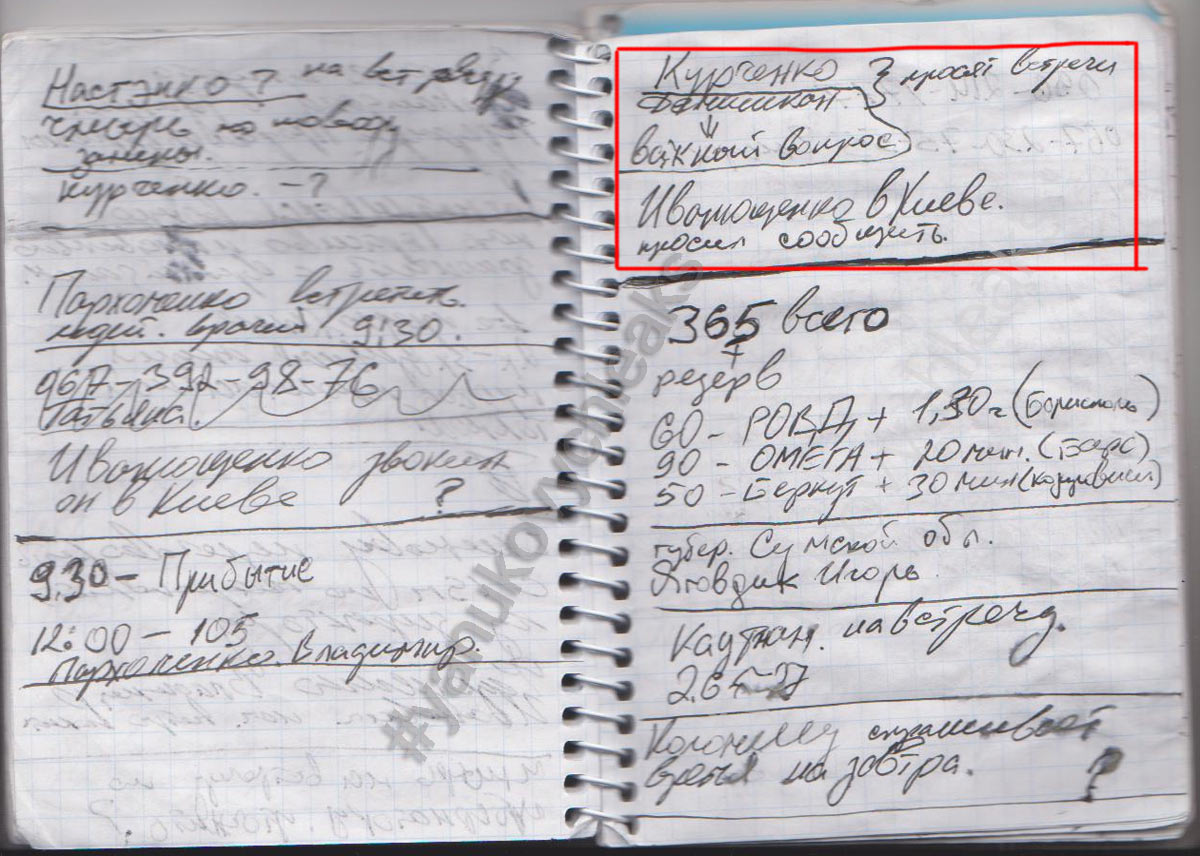 Настэнко? на встречу
по поводу
замены.
Курченко. -?
Пархоменко встретить
людей. врачей 9:30.
967-392-98-76
Татьяна.
Иванющенко звонил
он в Киеве ?
9.30 - Прибытие
12:00 - 105
Пархоменко Владимир.
Курченко } просят встречи
важный вопрос
Иванющенко в Киеве.
просил сообщить.
365 всего
+
резерв
60 - РОВД + 1,30 ч (Борисполь)
90 - ОМЕГА + 20 мин.
50 - Беркут + 30 мин
губер. Сумской обл.
Яговдик Игорь.
на встречу.
спрашивает
время на завтра. ?
#yanukovychleaks